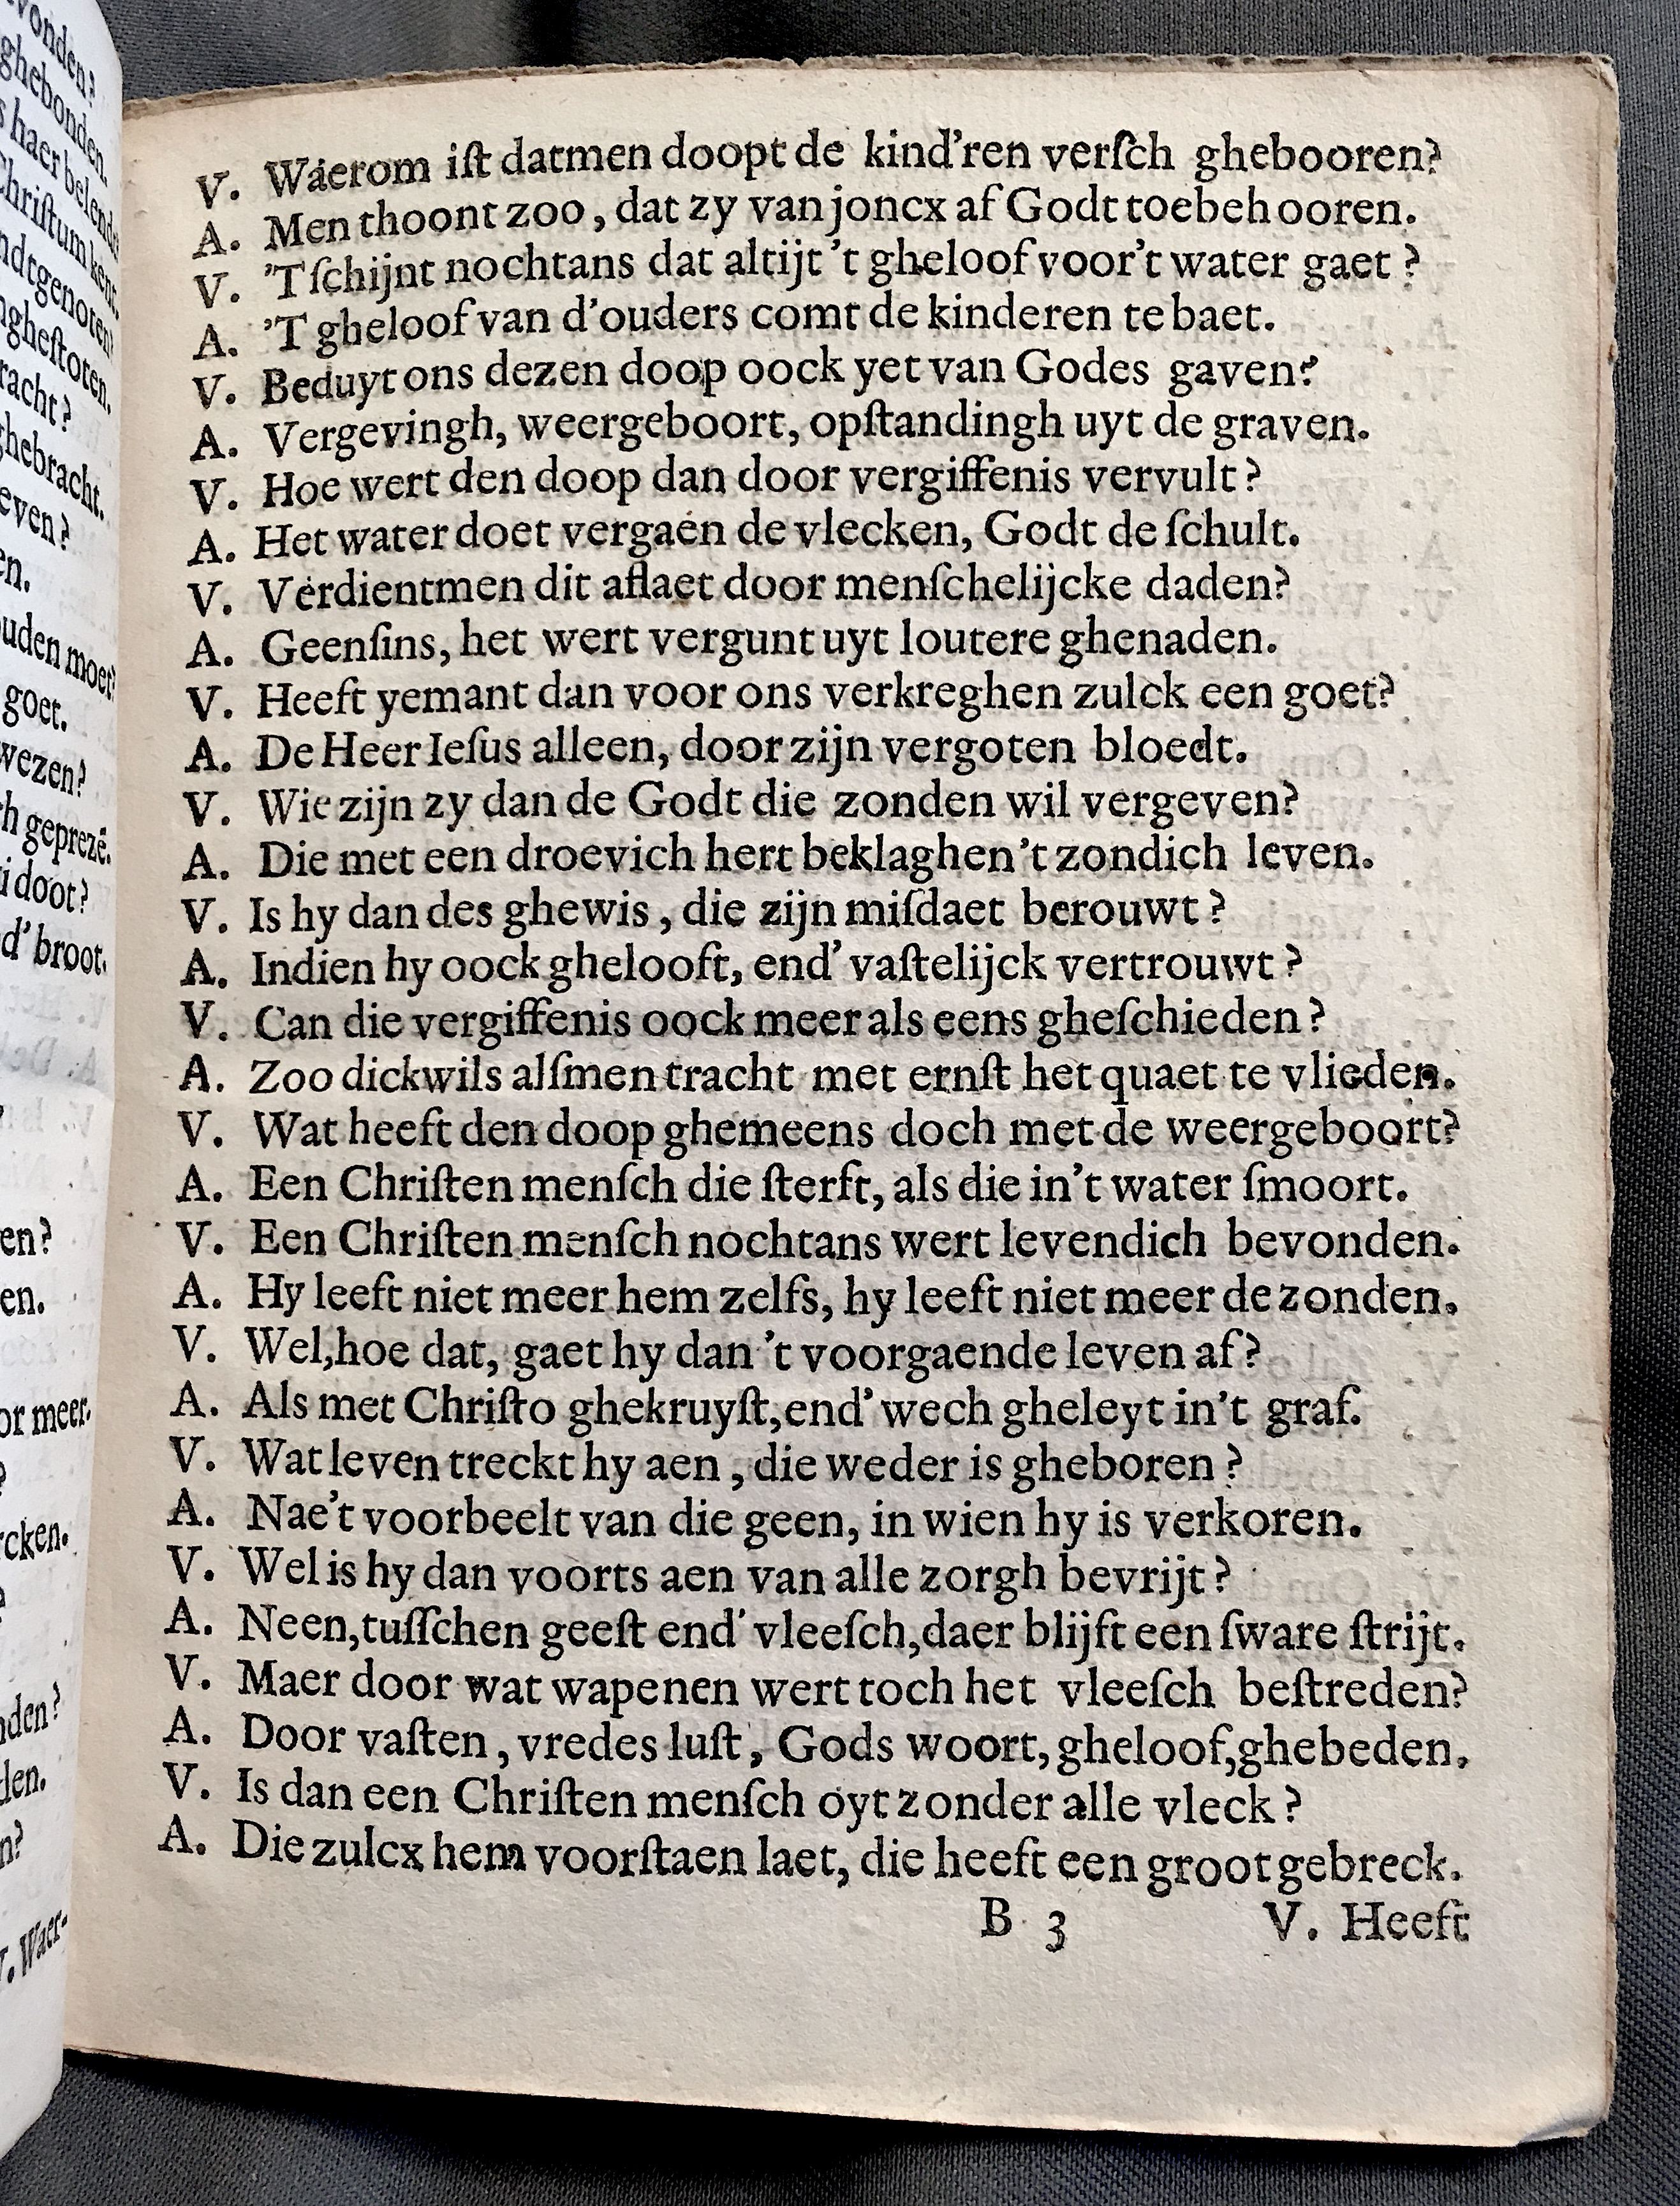 vonden?
ghebonden.
s haer belende
Christum kent.
ndtgenoten?
ngheſtoten.
racht?
ghebracht.
even?
en.
ouden moet?
goet.
wezen?
h geprezē.
doot?
d' broot.
en?
en.
or meer.
?
rcken.
?
nden?
den.
n?
V. Waer-
V. Waerom iſt datmen doopt de kind'ren verſch ghebooren?
A. Men thoont zoo, dat zy van joncx af Godt toebehooren.
V. 'T ſchijnt nochtans dat altijt 't gheloof voor't water gaet?
A. 'T gheloof van d'ouders comt de kinderen te baet.
V. Beduyt ons dezen doop oock yet van Godes gaven?
A. Vergevingh, weergeboort, opſtandingh uyt de graven.
V. Hoe wert den doop dan door vergiffenis vervult?
A. Het water doet vergaen de vlecken, Godt de ſchult.
V. Verdientmen dit aflaet door menſchelijcke daden?
A. Geenſins, het wert vergunt uyt loutere ghenaden.
V. Heeft yemant dan voor ons verkreghen zulck een goet?
A. De Heer Ieſus alleen, door zijn vergoten bloedt.
V. Wie zijn zy dan de Godt die zonden wil vergeven?
A. Die met een droevich hert beklaghen't zondich leven.
V. Is hy dan des ghewis, die zijn miſdaet berouwt?
A. Indien hy oock ghelooft, end' vaſtelijck vertrouwt?
V. Can die vergiffenis oock meer als eens gheſchieden?
A. Zoo dickwils alſmen tracht met ernſt het quaet te vlieden.
V. Wat heeft den doop ghemeens doch met de weergeboort?
A. Een Chriſten menſch die ſterft, als die in't water ſmoort.
V. Een Chriſten menſch nochtans wert levendich bevonden.
A. Hy leeft niet meer hem zelfs, hy leeft niet meer de zonden.
V. Wel,hoe dat, gaet hy dan 't voorgaende leven af?
A. Als met Chriſto ghekruyſt,end' wech gheleyt in't graf.
V. Wat leven treckt hy aen, die weder is gheboren?
A. Nae't voorbeelt van die geen, in wien hy is verkoren.
V. Wel is hy dan voorts aen van alle zorgh bevrijt?
A. Neen,tuſſchen geeſt end' vleeſch,daer blijft een ſware ſtrijt.
V. Maer door wat wapenen wert toch het vleeſch beſtreden?
A. Door vaſten, vredes luſt, Gods woort,gheloof,ghebeden.
V. Is dan een Chriſten menſch oyt zonder alle vleck?
A. Die zulcx hem voorſtaen laet, die heeft een groot gebreck.
B 3 V. Heeft